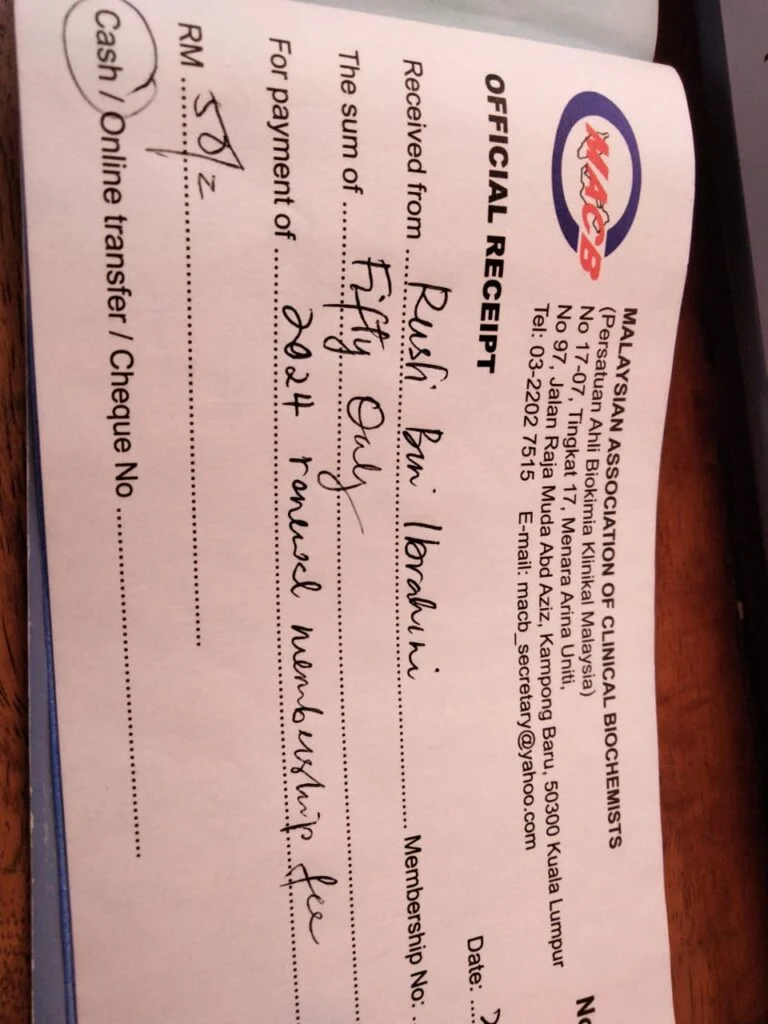 MACB
MALAYSIAN ASSOCIATION OF CLINICAL BIOCHEMISTS
(Persatuan Ahli Biokimia Klinikal Malaysia)
No 17-07, Tingkat 17, Menara Arina Uniti,
No 97, Jalan Raja Muda Abd Aziz, Kampong Baru, 50300 Kuala Lumpur
Tel: 03-2202 7515 E-mail: macb_secretary@yahoo.com
No
OFFICIAL RECEIPT
Date: ....
Received from ... Rusli Bin Ibrahim ... Membership No: .
The sum of ... Fifty Only
For payment of ... 2024 renewal membership fee
RM ... 50/
Cash / Online transfer / Cheque No ...